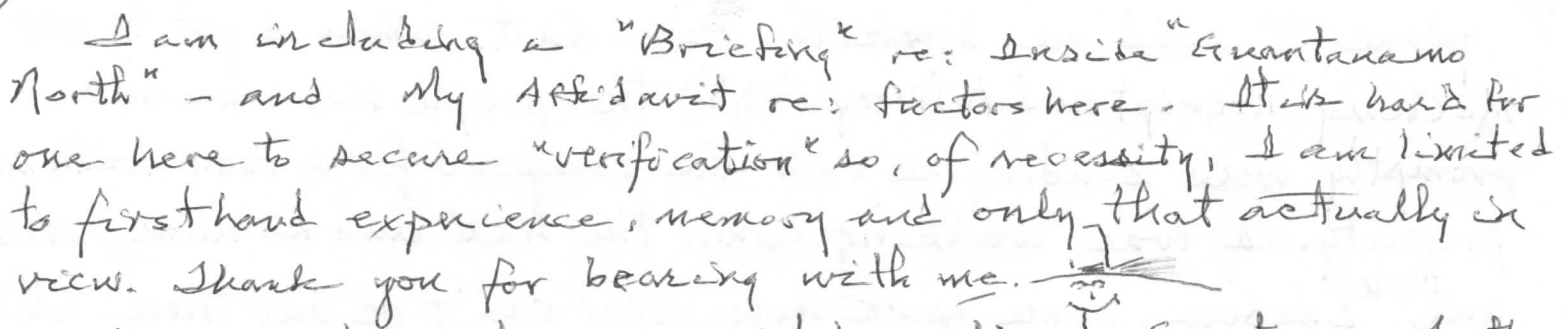 I am including a "Briefing" re: Inside "Guantanamo
North" - and My Affidavit re: factors here. It is hard for
one here to secure "verification" so, of necessity, I am limited
to firsthand experience, memory and only that actually in
view. Thank you for bearing with me.